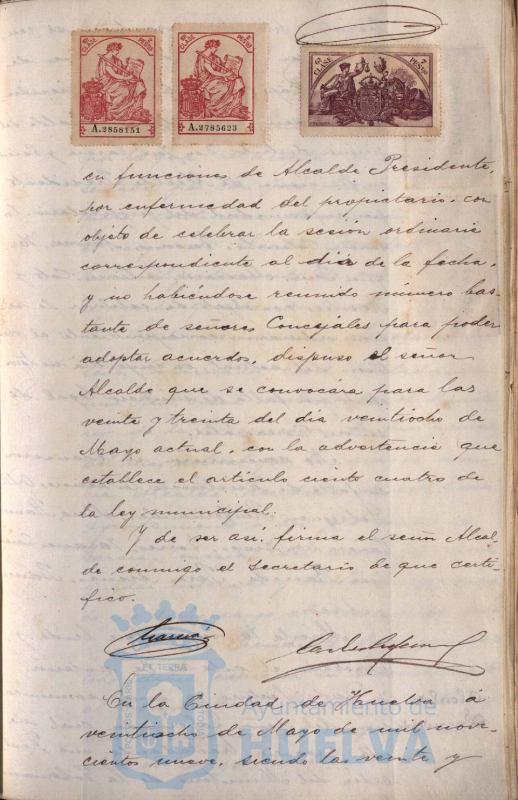 6ª CLASE 7 PESETAS
6ª CLASE 7 PESETAS
6ª CLASE 7 PESETAS
A.2858151
A.2785623
en funciones de Alcalde Presidente,
por enfermedad del propietario, con
objeto de celebrar la sesión ordinaria
correspondiente al día de la fecha,
y no habiéndose reunido número bas-
tante de señores Concejales para poder
adoptar acuerdos, dispuso el señor
Alcalde que se convocára para las
veinte y treinta del dia veintiocho de
Mayo actual, con la advertencia que
establece el artículo ciento cuatro de
la ley municipal.
Y de ser así, firma el señor Alcal-
de conmigo el Secretario de que certi-
fico.
ET TERRÆ
En la Ciudad de Huelva á
Ayuntamiento de
HUELVA
veintiocho de Mayo de mil nove-
cientos nueve, siendo las veinte y